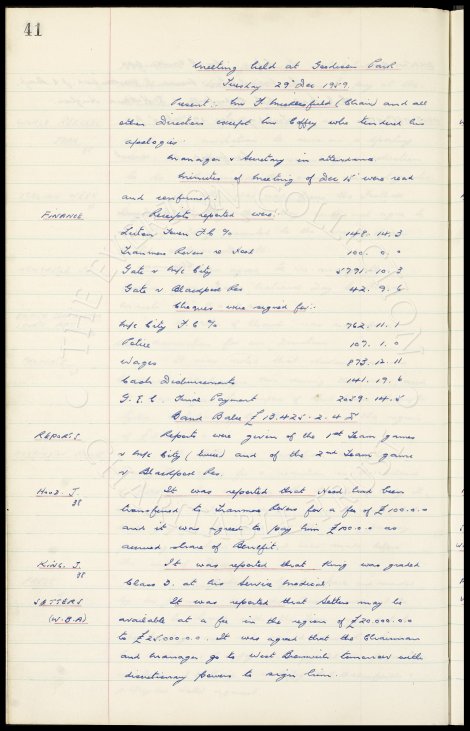 41
Meeting held at Goodison Park
Tuesday 29th Dec 1959.
Present:- Mr F. Micklesfield (Chair) and all
other Directors except Mr Coffey who tendered his
apologies.
Manager & Secretary in attendance
Minutes of meeting of Dec 15th were read
and confirmed.
FINANCE Receipts reported were:-
Luton Town F.C % 148. 14. 3
Tranmere Rovers re Hood 100. 0. 0
Gate v M/c City 5791. 10. 3
Gate v Blackpool Res 42. 9. 6
Cheques were signed for:-
M/c City F.C % 762. 11. 1
Police 107. 1. 0
Wages 873. 12. 11
Cash Disbursements 141. 19. 6
G.E.C. Final Payment 2059. 14. 5
Bank Balce £13,425. 2. 4
REPORTS Reports were given of the 1st Team games
v M/c City (twice) and of the 2nd Team game
v Blackpool Res.
HOOD. J. It was reported that Hood had been
transferred to Tranmere Rovers for a fee of £100.0.0
and it was agreed to pay him £100.0.0 as
accrued share of Benefit.
KING. J. It was reported that King was graded
Class 3. at his Service medical.
SETTERS It was reported that Setters may be
(W.B.A) available at a fee in the region of £20,000.0.0
to £25,000.0.0. It was agreed that the Chairman
and Manager go to West Bromwich tomorrow with
discretionary powers to sign him.
THE EVERTON COLLECTION
CHARITABLE TRUST